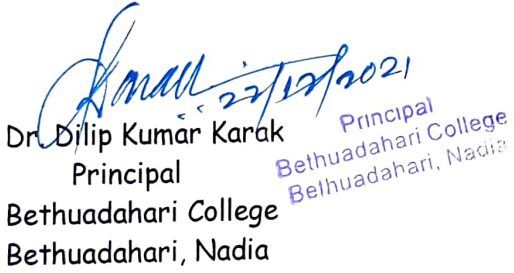 22/12/2021
Dr. Dilip Kumar Karak
Principal
Bethuadahari College
Bethuadahari, Nadia
Principal
Bethuadahari College
Bethuadahari, Nadia